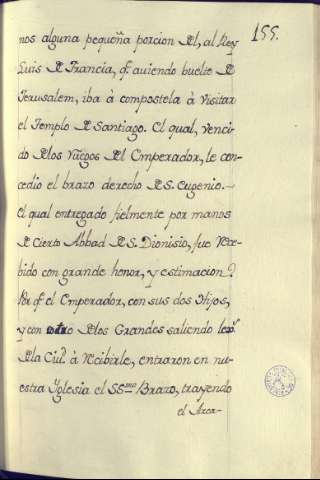 155.
nos alguna pequeña porcion del, al Rey
Luis de Francia, q.e auiendo buelto de
Jerusalem, iba à compostela à visitar
el Templo de Santiago. El qual, venci-
do de los ruegos del Emperador, le con-
cedio el brazo derecho de S. Eugenio.-
El qual entregado fielmente por manos
de cierto Abbad de S. Dionisio, fue rece-
bido con grande honor, y estimacion
Por q.e el Emperador, con sus dos Hijos,
y con otro de los Grandes saliendo
de la Ciu.d à recibirle, entraron en nu-
estra Yglesia el SS.mo Brazo, trayendo
el Arca-